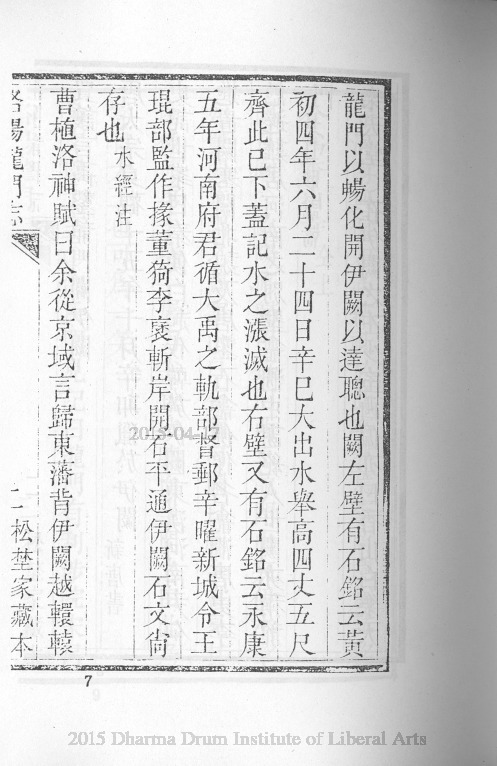 龍門以暢化開伊闕以達聰也闕左壁有石銘云黃
初四年六月二十四日辛巳大出水舉高四丈五尺
齊此已下蓋記水之漲減也右壁又有石銘云永康
五年河南府君循大禹之軌部督郵辛曜新城令王
琨部監作掾董猗李褒斬岸開石平通伊闕石文尙
存也水經注
曹植洛神賦曰余從京域言歸東藩背伊闕越轘轅
洛陽龍門志
一 松埜家藏本
7
2015-04-17
2015 Dharma Drum Institute of Liberal Arts